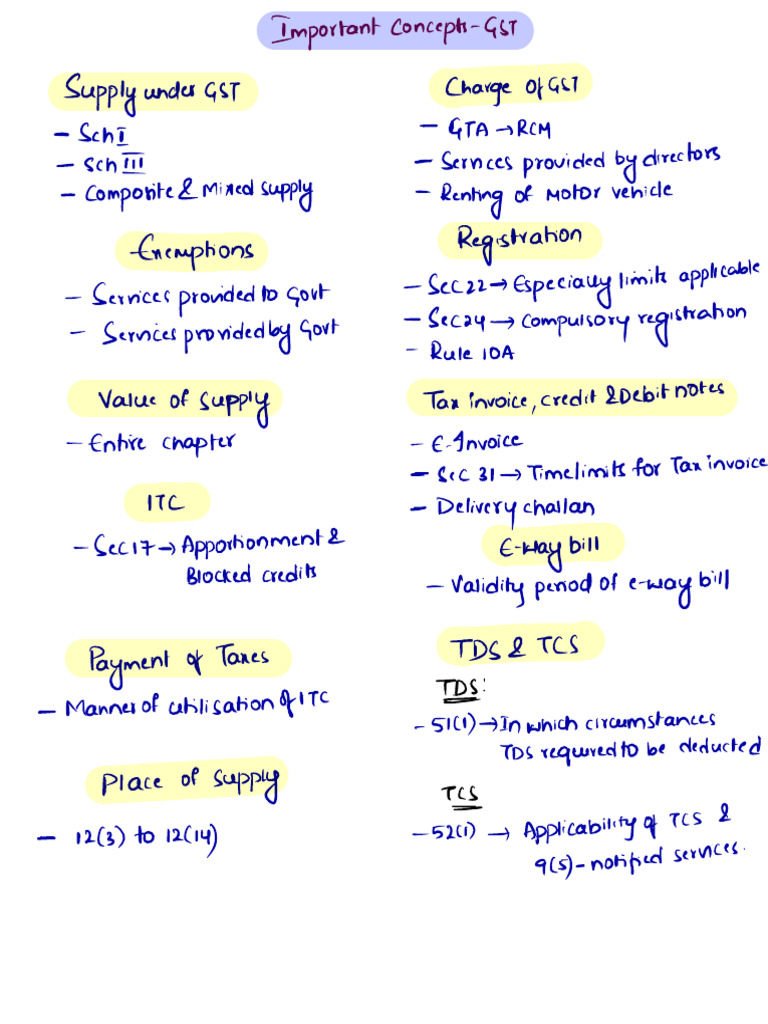 Important Concepts - GST
Supply under GST
- Sch I
- Sch III
- Composite & Mixed Supply
Exemptions
- Services provided to Govt
- Services provided by Govt
Value of Supply
- Entire chapter
ITC
- Sec 17 → Apportionment &
Blocked credits
Payment of Taxes
- Manner of utilisation of ITC
Place of Supply
- 12(3) to 12(14)
Charge of GST
- GTA → RCM
- Services provided by directors
- Renting of Motor vehicle
Registration
- Sec 22 → Especially limits applicable
- Sec 24 → Compulsory registration
- Rule 10A
Tax invoice, credit & Debit notes
- E-Invoice
- Sec 31 → Time limits for Tax invoice
- Delivery challan
E-way bill
- Validity period of e-way bill
TDS & TCS
TDS:
- 51(1) → In which circumstances
TDS required to be deducted
TCS
- 52(1) → Applicability of TCS &
9(5) - notified services.